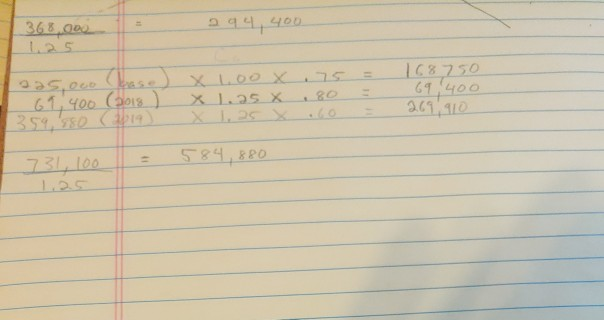 368,000 = 294,400
1.25
225,000 (base) X 1.00 X .75 = 168750
69,400 (2018) X 1.25 X .80 = 69,400
359,880 (2019) X 1.25 X .60 = 269,910
731,100 = 584,880
1.25